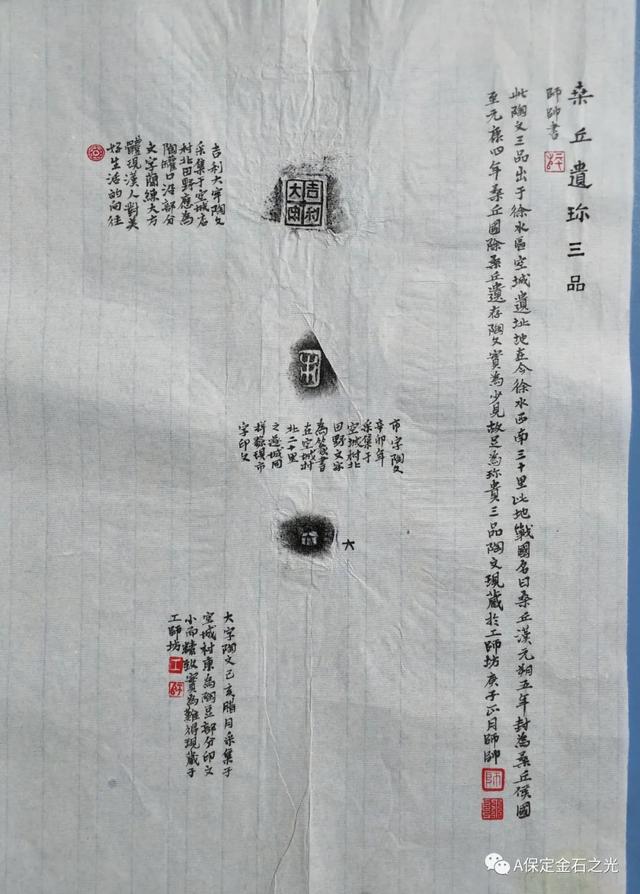 桑丘遺珎三品
師師書
此陶文三品出于徐水區空城遺址地在今徐水西南三十里此地戰國名曰桑丘漢元朔五年封為桑丘侯國
至元鼎四年桑丘國除桑丘遺存陶文實為少見故足為珎貴三品陶文現藏於工師坊庚子正月師師
吉利
大
吉利大牢陶文
采集于空城名
村北田野應為
陶罐口沿部分
文字簡練大方
體現漢人對美
好生活的向往
市字陶文
辛卯年
采集于
空城村北
田野文字
為篆書
在空城村
北二十里
之遂城同
樣發現市
字印文
六
大字陶文己亥腊月采集于
空城村東為陶豆部分印文
小而精致實為難得現藏于
工師坊
A保定金石之光